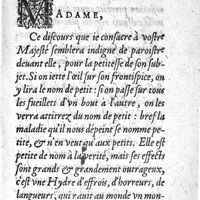 MADAME,
Ce discours que ie consacre à vostre
Majesté semblera indigne de paroistre
deuant elle, pour la petitesse de son sub-
jet. Si on iette l'œil sur son frontispice, on
y lira le nom de petit: si on passe sur tous
les fueillets d'vn bout à l'autre, on les
verra attirez du nom de petit: bref la
maladie qu'il nous dépeint se nomme pe-
tite, & n'en veut qu'aux petits. Elle est
petite de nom à la verité, mais ses effects
sont grands & grandement outrageux,
c'est vne Hydre d'effrois, d'horreurs, de
langueurs, qui rauit au monde vn mon-